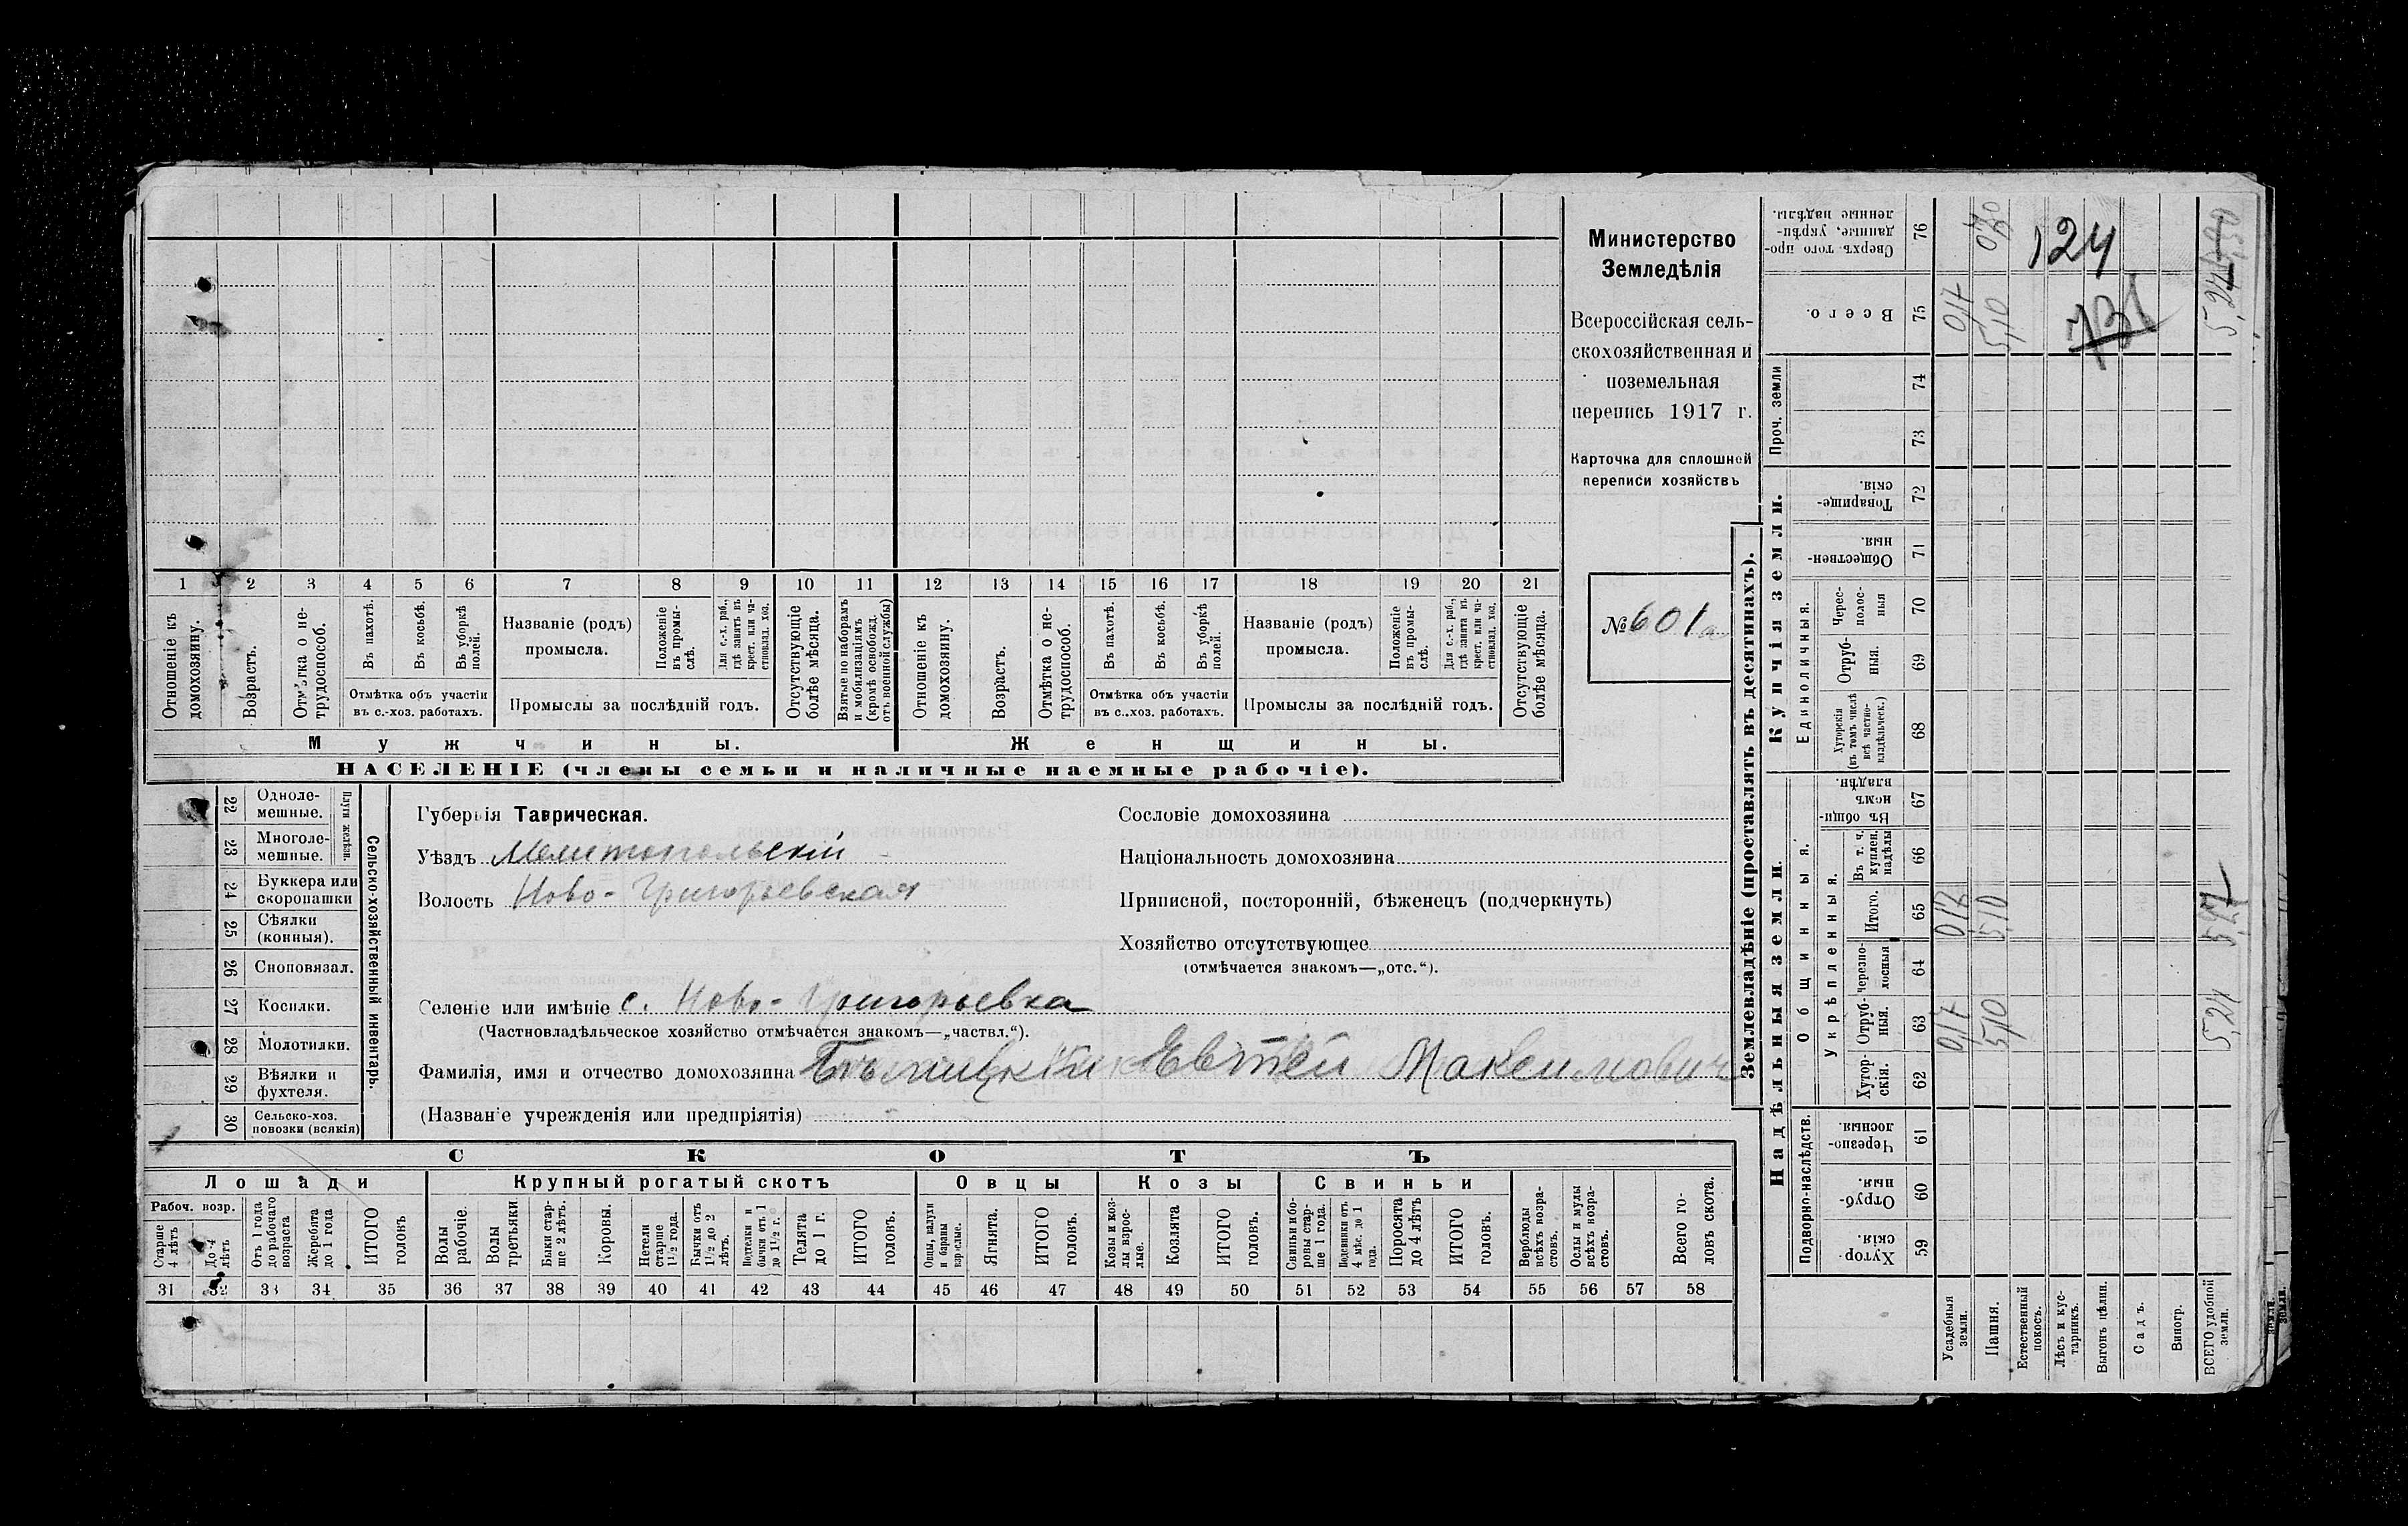 Министерство
Земледѣлія
Всероссійская сель-
скохозяйственная и
поземельная
перепись 1917 г.
Карточка для сплошней
переписи хозяйствъ
№ 601
1 2 3 4 5 6 7 8 9 10 11 12 13 14 15 16 17 18 19 20 21
Отношеніе къ домохозяину.
Возрастъ.
Отмѣтка о не-трудоспособ.
Въ пахотѣ.
Въ косьбѣ.
Въ уборкѣ полей.
Отмѣтка объ участіи
въ с.-хоз. работахъ.
Названіе (родъ)
промысла.
Положеніе въ промы-слѣ.
Для с.-х. раб., гдѣ занятъ въ крест. или ча-стновлад. хоз.
Промыслы за послѣдній годъ.
Отсутствующіе болѣе мѣсяца.
Взятые по наборамъ и мобилизаціямъ (кромѣ освобожд. отъ военной службы)
Отношеніе къ домохозяину.
Возрастъ.
Отмѣтка о не-трудоспособ.
Въ пахотѣ.
Въ косьбѣ.
Въ уборкѣ полей.
Отмѣтка объ участіи
въ с..хоз. работахъ.
Названіе (родъ)
промысла.
Положеніе въ промы-слѣ.
Для с.-х. раб., гдѣ занята въ крест. или ча-стновлад. хоз.
Промыслы за послѣдній годъ.
Отсутствующіе болѣе мѣсяца.
Мужчины.
Женщины.
НАСЕЛЕНІЕ (члены семьи и наличные наемные рабочіе).
22 Одноле-мешные.
23 Многоле-мешные.
Плуги желѣзн.
24 Буккера или скоропашки
25 Сѣялки (конныя).
26 Сноповязал.
27 Косилки.
28 Молотилки.
29 Вѣялки и фухтеля.
30 Сельско-хоз. повозки (всякія)
Сельско-хозяйственный инвентарь.
Губернія Таврическая.
Уѣздъ Мелитопольскій
Волость Ново-Григорьевская
Селеніе или имѣніе с. Ново-Григорьевка
(Частновладѣльческое хозяйство отмѣчается знакомъ—„частвл.“).
Фамилія, имя и отчество домохозяина Бѣлицкій Евтей Максимович
(Названіе учрежденія или предпріятія)
Сословіе домохозяина
Національность домохозяина
Приписной, посторонній, бѣженецъ (подчеркнуть)
Хозяйство отсутствующее
(отмѣчается знакомъ—„отс.“).
СКОТЪ
Лошади
Крупный рогатый скотъ
Овцы
Козы
Свиньи
Рабоч. возр.
Старше 4 лѣтъ
До 4 лѣтъ
Отъ 1 года до рабочаго возраста
Жеребята до 1 года
ИТОГО головъ
Волы рабочіе.
Волы третьяки
Быки стар-ше 2 лѣтъ.
Коровы.
Нетели старше 1½ года.
Бычки отъ 1½ до 2 лѣтъ.
Подтелки и бычки отъ 1 до 1½ г.
Телята до 1 г.
ИТОГО головъ.
Овцы, валухи и бараны взрослые.
Ягнята.
ИТОГО головъ.
Козы и коз-лы взрос-лые.
Козлята
ИТОГО головъ.
Свиньи и бо-ровы стар-ше 1 года.
Подсвинки отъ 4 мѣс. до 1 года.
Поросята до 4 лѣтъ
ИТОГО головъ.
Верблюды всѣхъ возра-стовъ.
Ослы и мулы всѣхъ возра-стовъ.
Всего го-ловъ скота.
31 32 33 34 35 36 37 38 39 40 41 42 43 44 45 46 47 48 49 50 51 52 53 54 55 56 57 58
Землевладѣніе (проставлять въ десятинахъ).
Надѣльныя земли.
Купчія земли.
Проч. земли
Подворно-наслѣдств.
Общинныя.
Укрѣпленныя.
Единоличныя.
59 Хутор-скія.
60 Отруб-ныя.
61 Черезпо-лосныя.
62 Хутор-скія.
63 Отруб-ныя. 0,17 5,10 5,27
64 Черезпо-лосныя
65 Итого. 0,17 5,10 5,27
66 Въ т. ч. куплен. надѣлы
67 Въ общи-номъ владѣн.
68 Хуторскія (въ томъ числѣ всѣ частно-владѣльческ.)
69 Отруб-ныя.
70 Черес-полос-ныя
71 Обществен-ныя.
72 Товарище-скія.
73
74
75 Всего. 0,17 5,10 5,27
76 Сверхъ того про-данные, укрѣп-ленные надѣлы.
124
731
Усадебныя земли.
Пашня.
Естественный покосъ.
Лѣсъ и кус-тарникъ.
Выгонъ цѣлин.
Садъ.
Виногр.
ВСЕГО удобной земли.